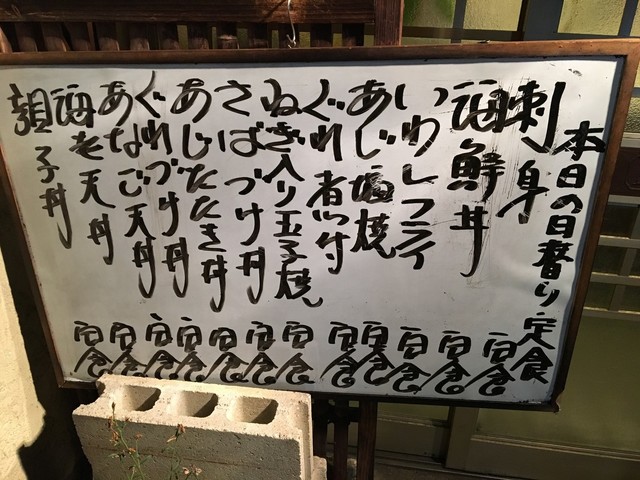 本日の日替り定食
刺身定食
海鮮丼定食
いわしフライ定食
あじ塩焼定食
ぐれ煮付定食
ねぎ入り玉子焼定食
さばづけ丼定食
あじたたき丼定食
ぐれづけ丼定食
あなご天丼定食
海老天丼定食
親子丼定食